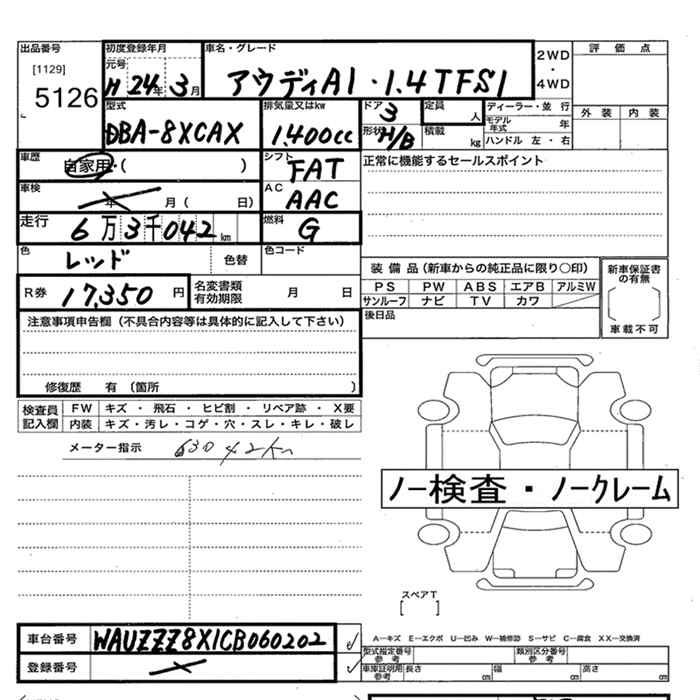 出品番号
[1129]
5126
初度登録年月
元号
H 24年 3月
車名・グレード
アウディA1・1.4TFSI
2WD
・
4WD
評価点
外装 内装
型式
DBA-8XCAX
排気量又はkw
1,400cc
ドア
3
形状
H/B
定員
人
積載
kg
ディーラー・並行
モデル年式 年
ハンドル 左・右
車歴
自家用・( )
シフト
FAT
正常に機能するセールスポイント
車検
年 月( 日)
AC
AAC
走行
6万3千042km
燃料
G
色
レッド
色替
色コード
R券 17,350円
名変書類
有効期限
月 日
装備品(新車からの純正品に限り〇印)
PS PW ABS エアB アルミW
サンルーフ ナビ TV カワ
後日品
新車保証書
の有無
車載不可
注意事項申告欄(不具合内容等は具体的に記入して下さい)
修復歴 有(箇所 )
検査員
記入欄
FW キズ・飛石・ヒビ割・リペア跡・X要
内装 キズ・汚レ・コゲ・穴・スレ・キレ・破レ
メーター指示 63042km
ノー検査・ノークレーム
スペアT
[ ]
車台番号 WAUZZZ8X1CB060202
登録番号
A―キズ E―エクボ U―凹み W―補修跡 S―サビ C―腐食 XX―交換済
型式指定番号
参考
類別区分番号
参考
車庫証明用
参考
長さ cm 幅 cm 高さ cm